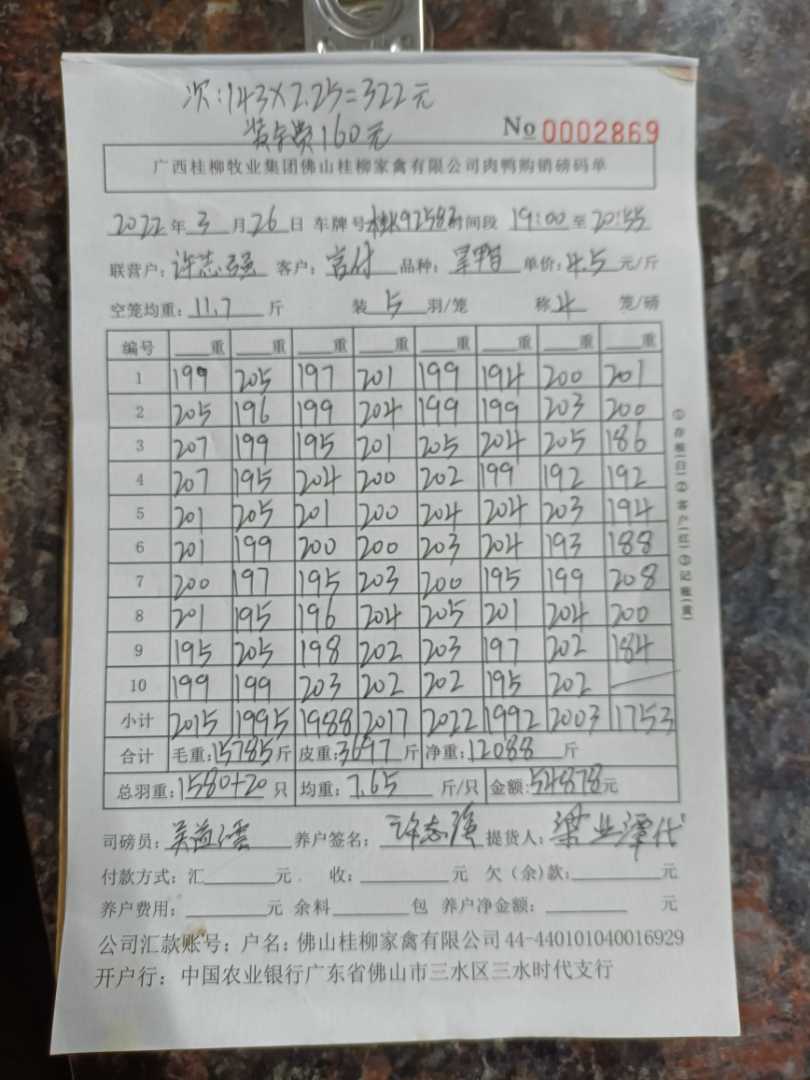 次:143×2.25=322元
装车费160元
No 0002869
广西桂柳牧业集团佛山桂柳家禽有限公司肉鸭购销磅码单
2022年3月26日 车牌号 92583 时间段 19:00至20:55
联营户:许志强 客户:官付 品种: 单价:4.5元/斤
空笼均重:11.7斤 装5羽/笼 称4笼/磅
编号 重 重 重 重 重 重 重 重
1 199 205 197 201 199 194 200 201
2 205 196 199 204 199 199 203 200
3 207 199 195 201 205 204 205 186
4 207 195 204 200 202 199 192 192
5 201 205 201 200 204 204 203 194
6 201 199 200 200 203 204 193 188
7 200 197 195 203 200 195 199 208
8 201 195 196 204 205 201 204 200
9 195 205 198 202 203 197 202 184
10 199 199 203 202 202 195 202 —
小计 2015 1995 1988 2017 2022 1992 2003 1753
合计 毛重:15785斤 皮重:3697斤 净重:12088斤
总羽重:1580+20只 均重:7.65斤/只 金额:54878元
司磅员: 养户签名:许志强 提货人:梁业泽代
付款方式:汇 元 收: 元 欠(余)款: 元
养户费用: 元 余料 包 养户净金额: 元
公司汇款账号;户名:佛山桂柳家禽有限公司44-440101040016929
开户行:中国农业银行广东省佛山市三水区三水时代支行
①存根(白)②客户(红)③记账(黄)